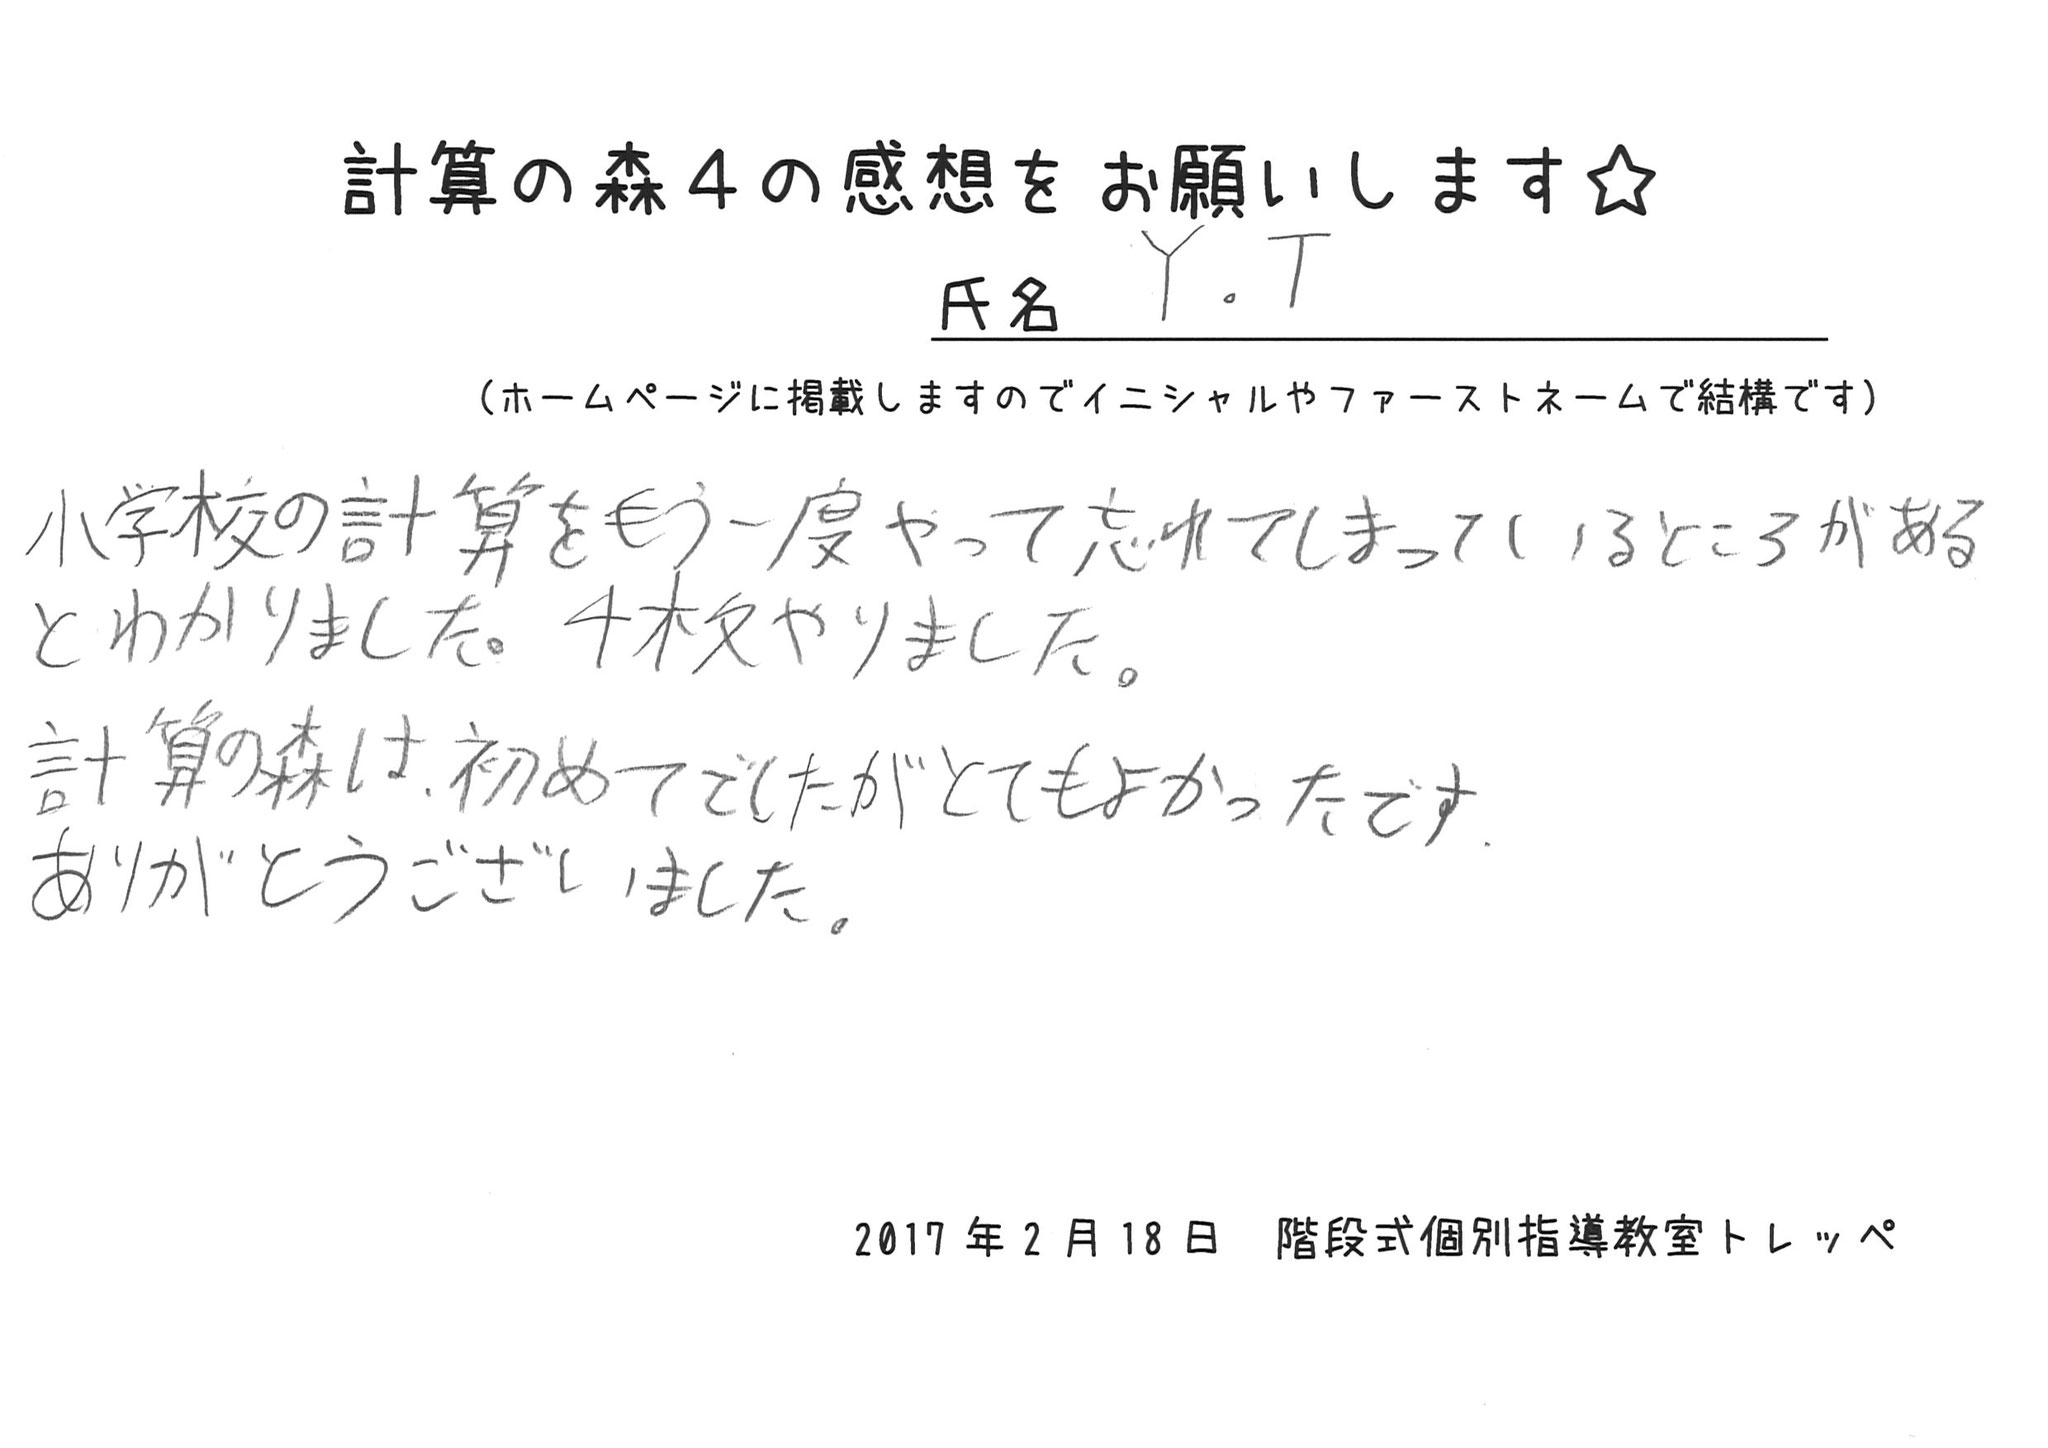 計算の森4の感想をお願いします☆
氏名 Y.T
(ホームページに掲載しますのでイニシャルやファーストネームで結構です)
小学校の計算をもう一度やって忘れてしまっているところがある
とわかりました。4枚やりました。
計算の森は、初めてでしたがとてもよかったです.
ありがとうございました。
2017年2月18日 階段式個別指導教室トレッペ